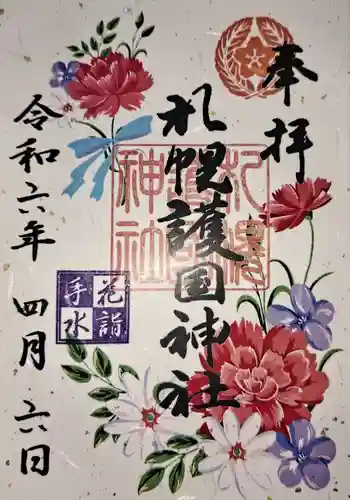 奉拝
札幌護国神社
札幌護国神社
花詣
手水
令和六年 四月 六日